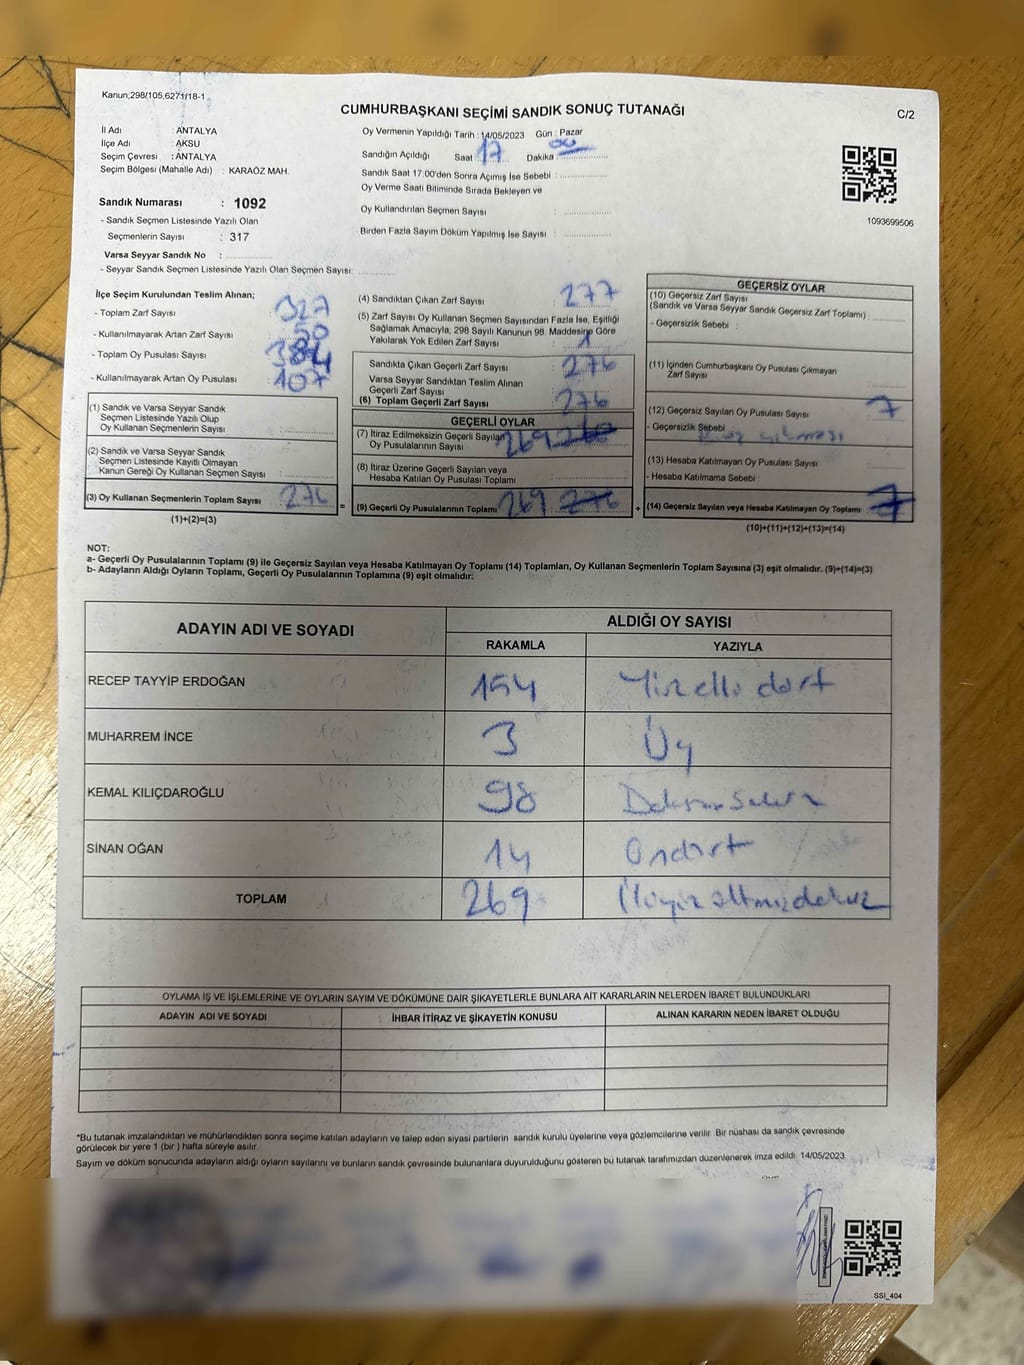 Kanun,298/105,6271/18-1
CUMHURBAŞKANI SEÇİMİ SANDIK SONUÇ TUTANAĞI
C/2
İl Adı : ANTALYA
İlçe Adı : AKSU
Seçim Çevresi : ANTALYA
Seçim Bölgesi (Mahalle Adı) : KARAÖZ MAH.
Oy Vermenin Yapıldığı Tarih : 14/05/2023 Gün : Pazar
Sandığın Açıldığı Saat 17 Dakika 00
Sandık Saat 17:00'den Sonra Açımış İse Sebebi :
Oy Verme Saati Bitiminde Sırada Bekleyen ve
Oy Kullandırılan Seçmen Sayısı :
Birden Fazla Sayım Döküm Yapılmış İse Sayısı :
1093699506
Sandık Numarası : 1092
- Sandık Seçmen Listesinde Yazılı Olan
Seçmenlerin Sayısı : 317
Varsa Seyyar Sandık No :
- Seyyar Sandık Seçmen Listesinde Yazılı Olan Seçmen Sayısı:
İlçe Seçim Kurulundan Teslim Alınan;
- Toplam Zarf Sayısı 327
- Kullanılmayarak Artan Zarf Sayısı 50
- Toplam Oy Pusulası Sayısı 384
- Kullanılmayarak Artan Oy Pusulası 107
(1) Sandık ve Varsa Seyyar Sandık
Seçmen Listesinde Yazılı Olup
Oy Kullanan Seçmen Sayısı :
(2) Sandık ve Varsa Seyyar Sandık
Seçmen Listesinde Kayıtlı Olmayan
Kanun Gereği Oy Kullanan Seçmen Sayısı :
(3) Oy Kullanan Seçmenlerin Toplam Sayısı 276 =
(1)+(2)=(3)
(4) Sandıktan Çıkan Zarf Sayısı 277
(5) Zarf Sayısı Oy Kullanan Seçmen Sayısından Fazla İse, Eşitliği
Sağlamak Amacıyla, 298 Sayılı Kanunun 98. Maddesine Göre
Yakılarak Yok Edilen Zarf Sayısı 1
Sandıkta Çıkan Geçerli Zarf Sayısı 276
Varsa Seyyar Sandıktan Teslim Alınan
Geçerli Zarf Sayısı
(6) Toplam Geçerli Zarf Sayısı 276
GEÇERLİ OYLAR
(7) İtiraz Edilmeksizin Geçerli Sayılan
Oy Pusulalarının Sayısı 269
(8) İtiraz Üzerine Geçerli Sayılan veya
Hesaba Katılan Oy Pusulası Toplamı
(9) Geçerli Oy Pusulalarının Toplamı 269 276 +
GEÇERSİZ OYLAR
(10) Geçersiz Zarf Sayısı
(Sandık ve Varsa Seyyar Sandık Geçersiz Zarf Toplamı) :
- Geçersizlik Sebebi :
(11) İçinden Cumhurbaşkanı Oy Pusulası Çıkmayan
Zarf Sayısı
(12) Geçersiz Sayılan Oy Pusulası Sayısı 7
- Geçersizlik Sebebi
(13) Hesaba Katılmayan Oy Pusulası Sayısı
- Hesaba Katılmama Sebebi :
(14) Geçersiz Sayılan veya Hesaba Katılmayan Oy Toplamı 7
(10)+(11)+(12)+(13)=(14)
NOT:
a- Geçerli Oy Pusulalarının Toplamı (9) ile Geçersiz Sayılan veya Hesaba Katılmayan Oy Toplamı (14) Toplamları, Oy Kullanan Seçmenlerin Toplam Sayısına (3) eşit olmalıdır. (9)+(14)=(3)
b- Adayların Aldığı Oyların Toplamı, Geçerli Oy Pusulalarının Toplamına (9) eşit olmalıdır.
ADAYIN ADI VE SOYADI
ALDIĞI OY SAYISI
RAKAMLA YAZIYLA
RECEP TAYYİP ERDOĞAN 154 Yüz elli dört
MUHARREM İNCE 3 Üç
KEMAL KILIÇDAROĞLU 98 Doksan Sekiz
SİNAN OĞAN 14 Ondört
TOPLAM 269 İkiyüz altmış dokuz
OYLAMA İŞ VE İŞLEMLERİNE VE OYLARIN SAYIM VE DÖKÜMÜNE DAİR ŞİKAYETLERLE BUNLARA AİT KARARLARIN NELERDEN İBARET BULUNDUKLARI
ADAYIN ADI VE SOYADI İHBAR İTİRAZ VE ŞİKAYETİN KONUSU ALINAN KARARIN NEDEN İBARET OLDUĞU
*Bu tutanak imzalandıktan ve mühürlendikten sonra seçime katılan adayların ve talep eden siyasi partilerin sandık kurulu üyelerine veya gözlemcilerine verilir. Bir nüshası da sandık çevresinde
görülecek bir yere 1 (bir) hafta süreyle asılır.
Sayım ve döküm sonucunda adayların aldığı oyların sayılarını ve bunların sandık çevresinde bulunanlara duyurulduğunu gösteren bu tutanak tarafımızdan düzenlenerek imza edildi. 14/05/2023
SSI_404